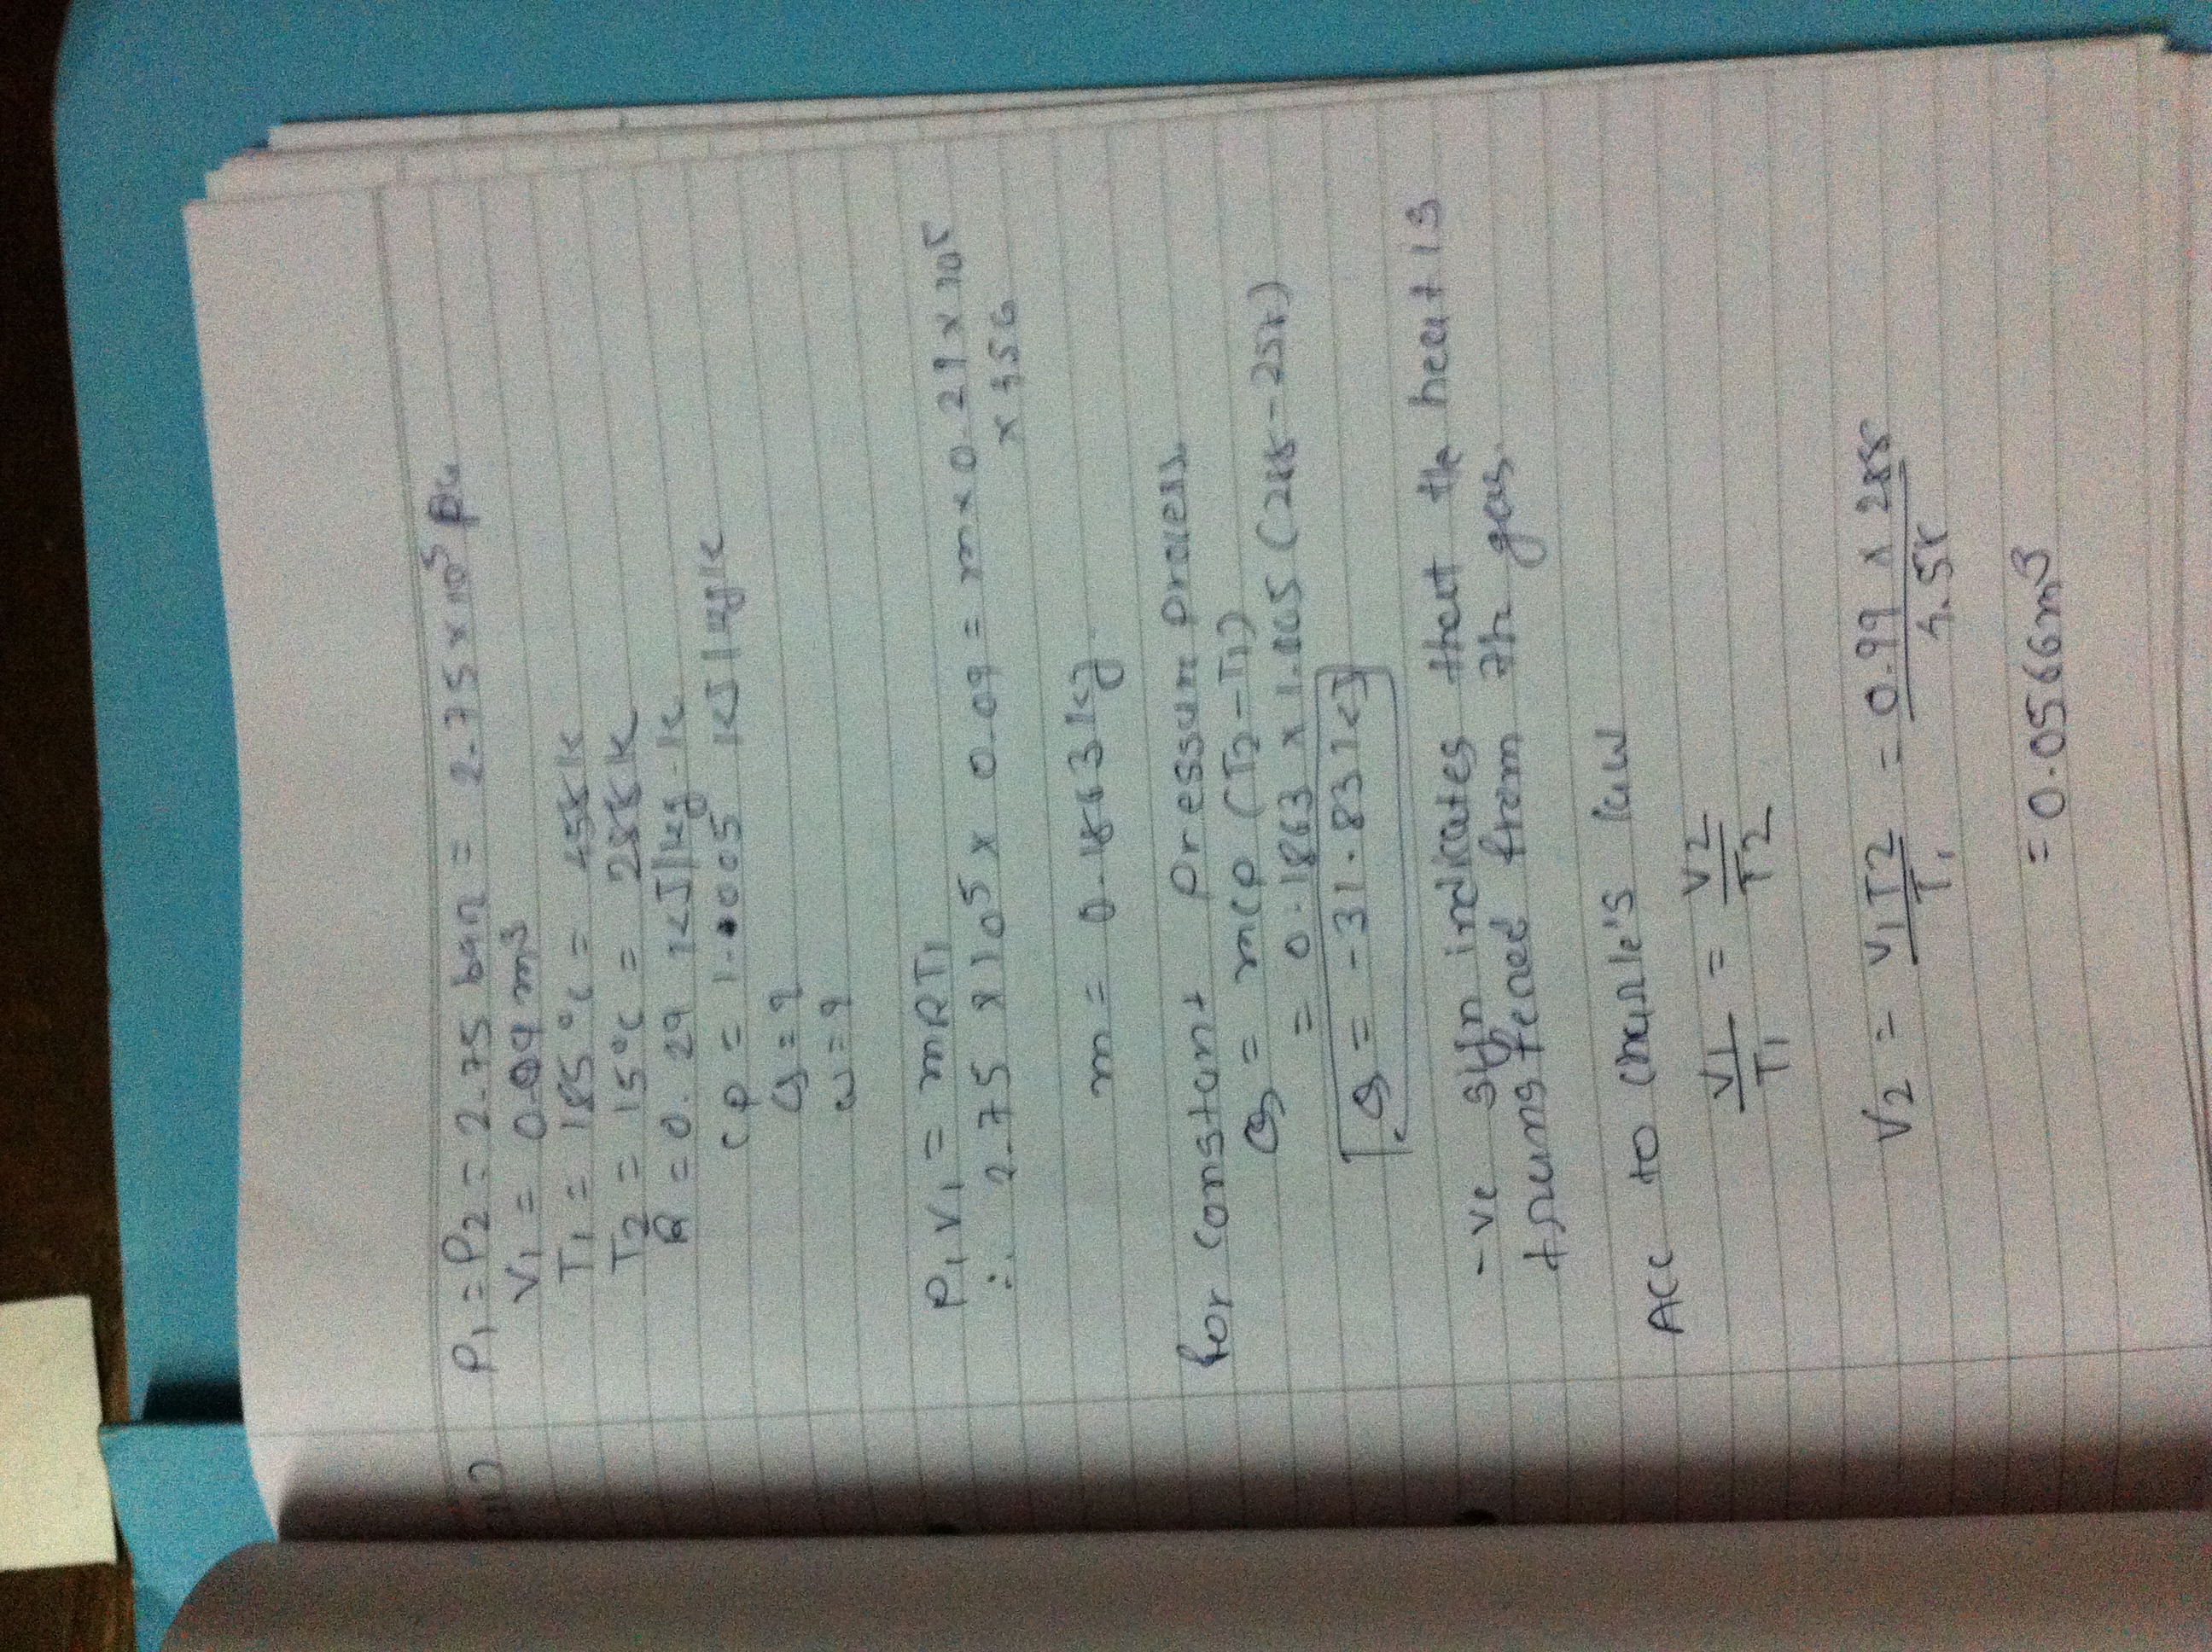 P1 = P2 = 2.75 bar = 2.75 × 10^5 Pa
V1 = 0.09 m3
T1 = 185 °c = 458 k
T2 = 15°c = 288 k
R = 0.29 kJ/kg-k
cp = 1.0005 kJ/kgk
Q = ?
w = ?
P1 V1 = mRT1
∴ 2.75 × 10^5 × 0.09 = m × 0.29 × 10^5
× 456
m = 0.1863 kg
for constant pressure process
Q = mcp (T2 - T1)
= 0.1863 × 1.005 (288 - 258)
Q = -31.83 kJ
-ve sign indicates that the heat is
transfered from the gas.
Acc to Charle's law
V1/T1 = V2/T2
V2 = V1T2/T1 = 0.99 × 288/4.58
= 0.0566 m3